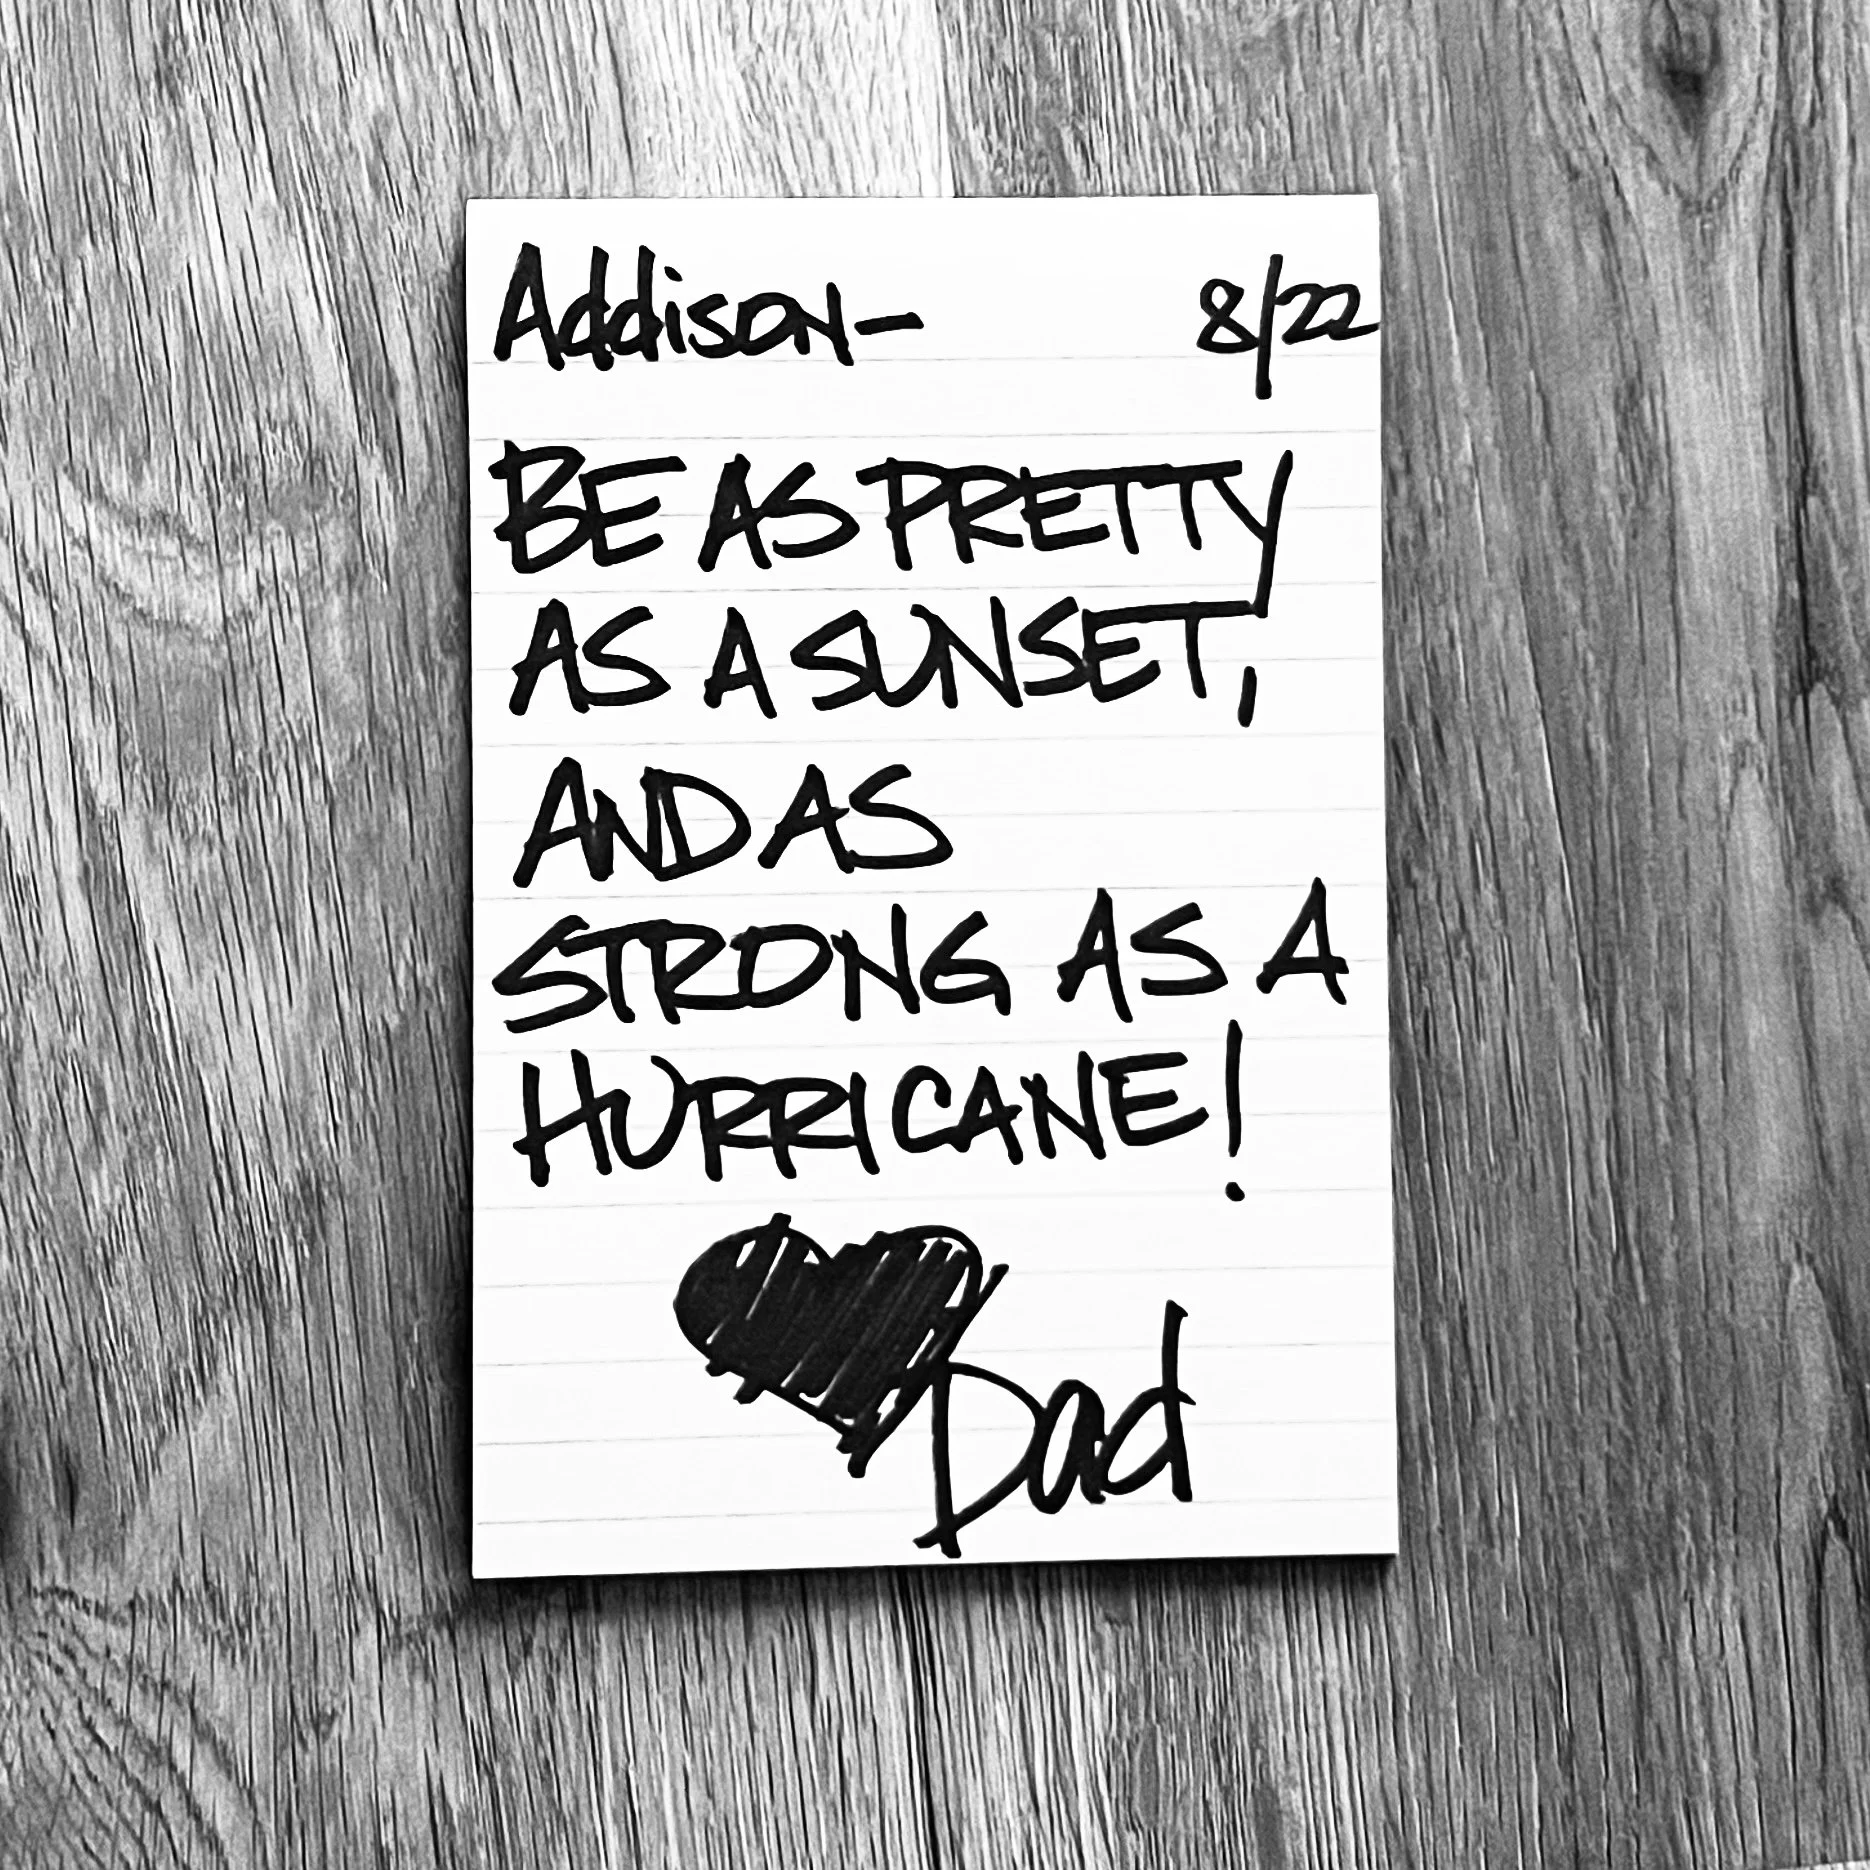 Addison- 8/22
BE AS PRETTY
AS A SUNSET,
AND AS
STRONG AS A
HURRICANE!
Dad